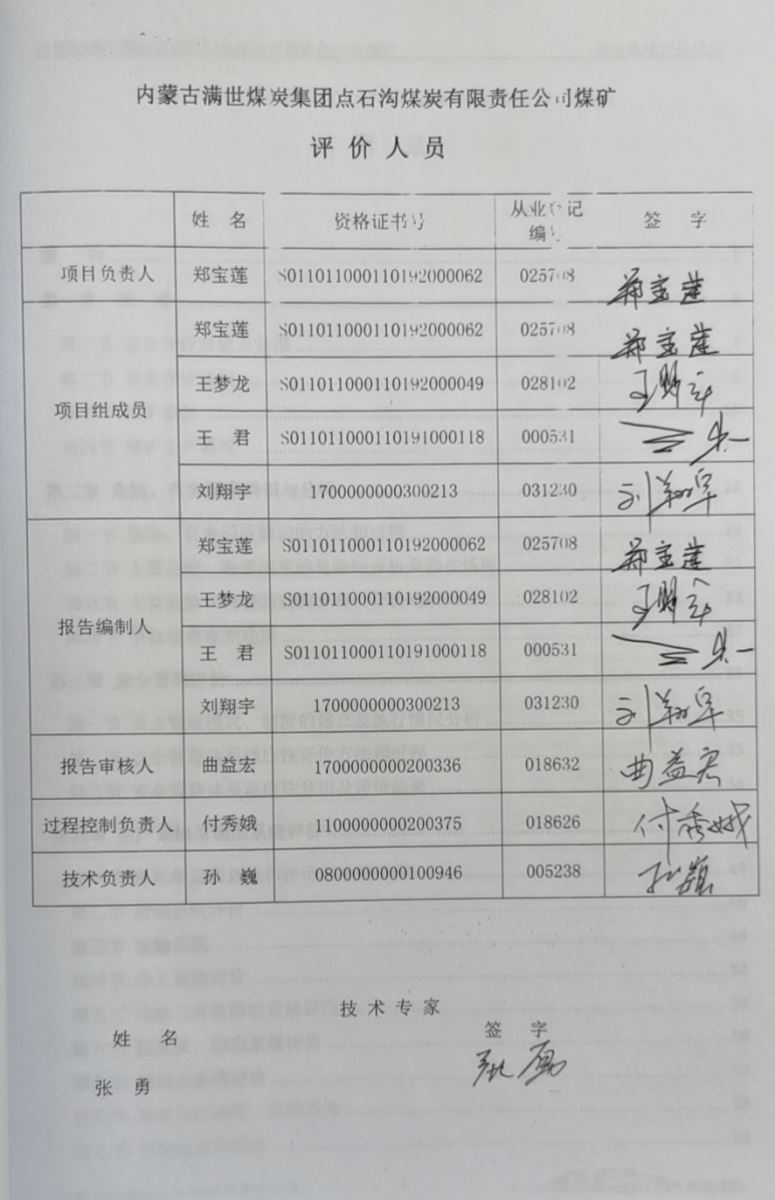 内蒙古满世煤炭集团点石沟煤炭有限责任公司煤矿
评价人员
姓 名 资格证书号 从业登记编号 签 字
项目负责人 郑宝莲 S011011000110192000062 025708 郑宝莲
项目组成员
郑宝莲 S011011000110192000062 025708 郑宝莲
王梦龙 S011011000110192000049 028102
王 君 S011011000110191000118 000531
刘翔宇 1700000000300213 031230 刘翔宇
报告编制人
郑宝莲 S011011000110192000062 025708 郑宝莲
王梦龙 S011011000110192000049 028102
王 君 S011011000110191000118 000531
刘翔宇 1700000000300213 031230 刘翔宇
报告审核人 曲益宏 1700000000200336 018632 曲益宏
过程控制负责人 付秀娥 1100000000200375 018626 付秀娥
技术负责人 孙 巍 0800000000100946 005238 孙巍
技术专家
姓 名 签 字
张 勇 张勇